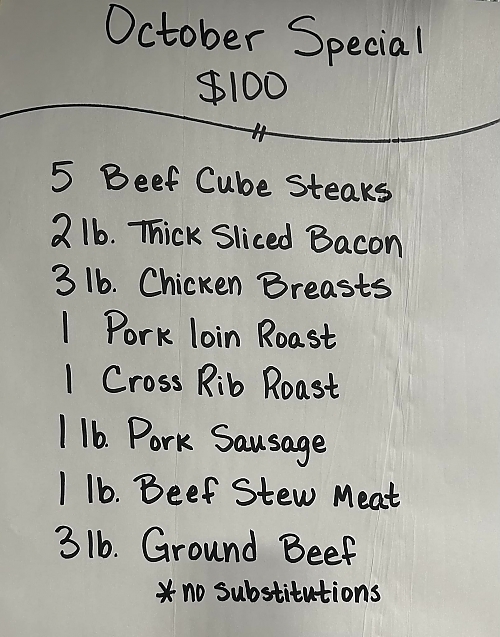 October Special
$100
5 Beef Cube Steaks
2 lb. Thick Sliced Bacon
3 lb. Chicken Breasts
1 Pork loin Roast
1 Cross Rib Roast
1 lb. Pork Sausage
1 lb. Beef Stew Meat
3 lb. Ground Beef
* no substitutions